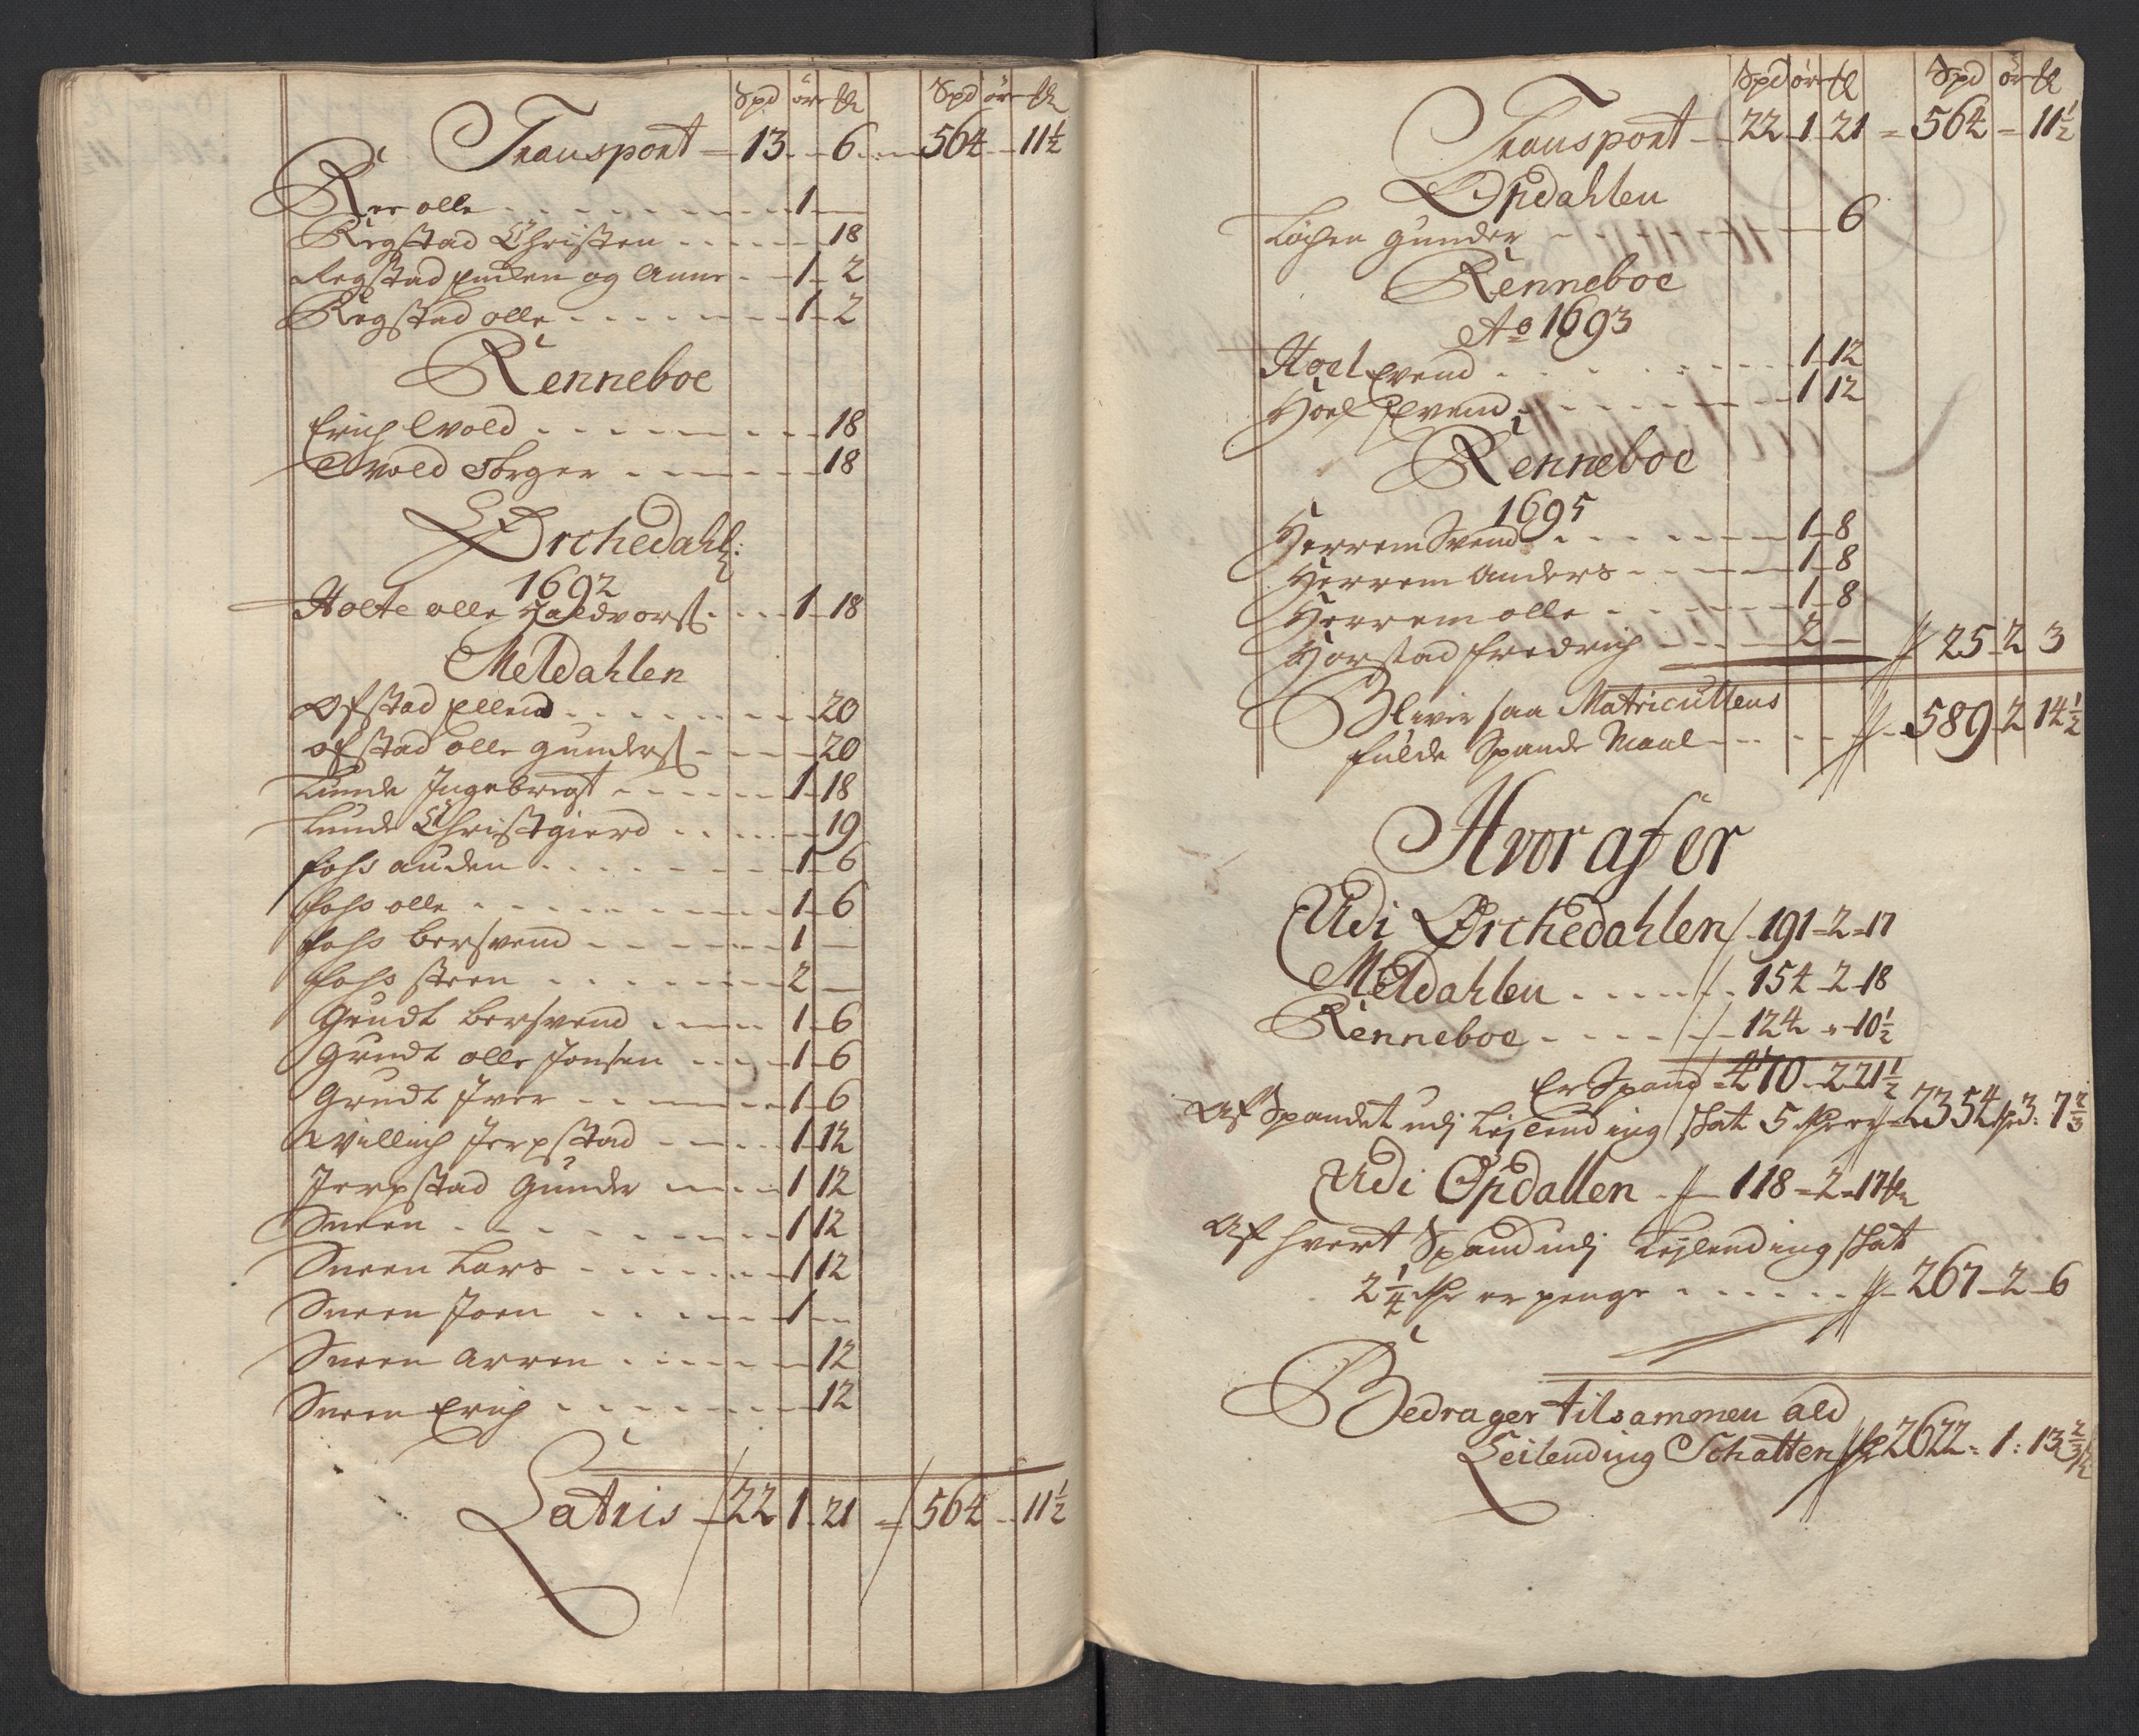 Spd ör ℔ Spd ör ℔
Transport – 13 – 6 – 564 – 11½
Ree olle – 1 –
Regstad Christen – 18
Regstad Enken og Anne – 1 – 2
Regstad olle – 1 – 2
Renneboe
Erich Evold – 18
Evold Birger – 18
Ørchedahl:
1692
Holte olle Haldvorss: – 1 – 18
Meldahlen
Ofstad Ellend – 20
Ofstad olle Gunderss – 20
Lunde Ingebrigt – 1 – 18
Lunde Christgierd – 19
Fohs auden – 1 – 6
Fohs olle – 1 – 6
Fohs Bersvend – 1 –
Fohs steen – 2 –
Grudt Bersvend – 1 – 6
Grudt olle Jonsen – 1 – 6
Grudt Iver – 1 – 6
Willich Jerpstad – 1 – 12
Jerpstad Gunder – 1 12
Sneen – 1 12
Sneen Lars – 1 12
Sneen Joen – 1 –
Sneen Arren – 12
Sneen Erich – 12
Latris – 22 1 – 21 = 564 – 11½
Spd ör ℔ Spd ör ℔
Transport – 22 – 1 21 = 564 = 11½
Opdahlen
Løchen Gunder – 6
Renneboe
Ao 1693
Hoel Evend – 1 – 12
Hoel Svend – 1 12
Renneboe
1695
Herrem Svend – 1 – 8
Herrem Anders – 1 – 8
Herrem olle – 1 – 8
Horstad Fredrich – 2 – 25 – 2 3
Bliver saa Matricullens
fulde Spande Maal – 589 – 2 14½
Hvor af er
Udi Ørchedahlen – 191 = 2 = 17
Meldahlen – 154 – 2 – 18
Renneboe – 124 – " – 10½
Er Spand = 470 – 2 – 21½
Af Spandet udj Leylending skat 5 rdr er – 2354 rdr 3: 7⅔
Udi Opdallen – 118 = 2 = 17 ℔
Af hvert Spand udj Leylending skat
2¼ rdr er penge – 267 – 2 – 6
Bedrager tilsammen ald
Leilending Schatten rdr 2622 = 1: 13⅔